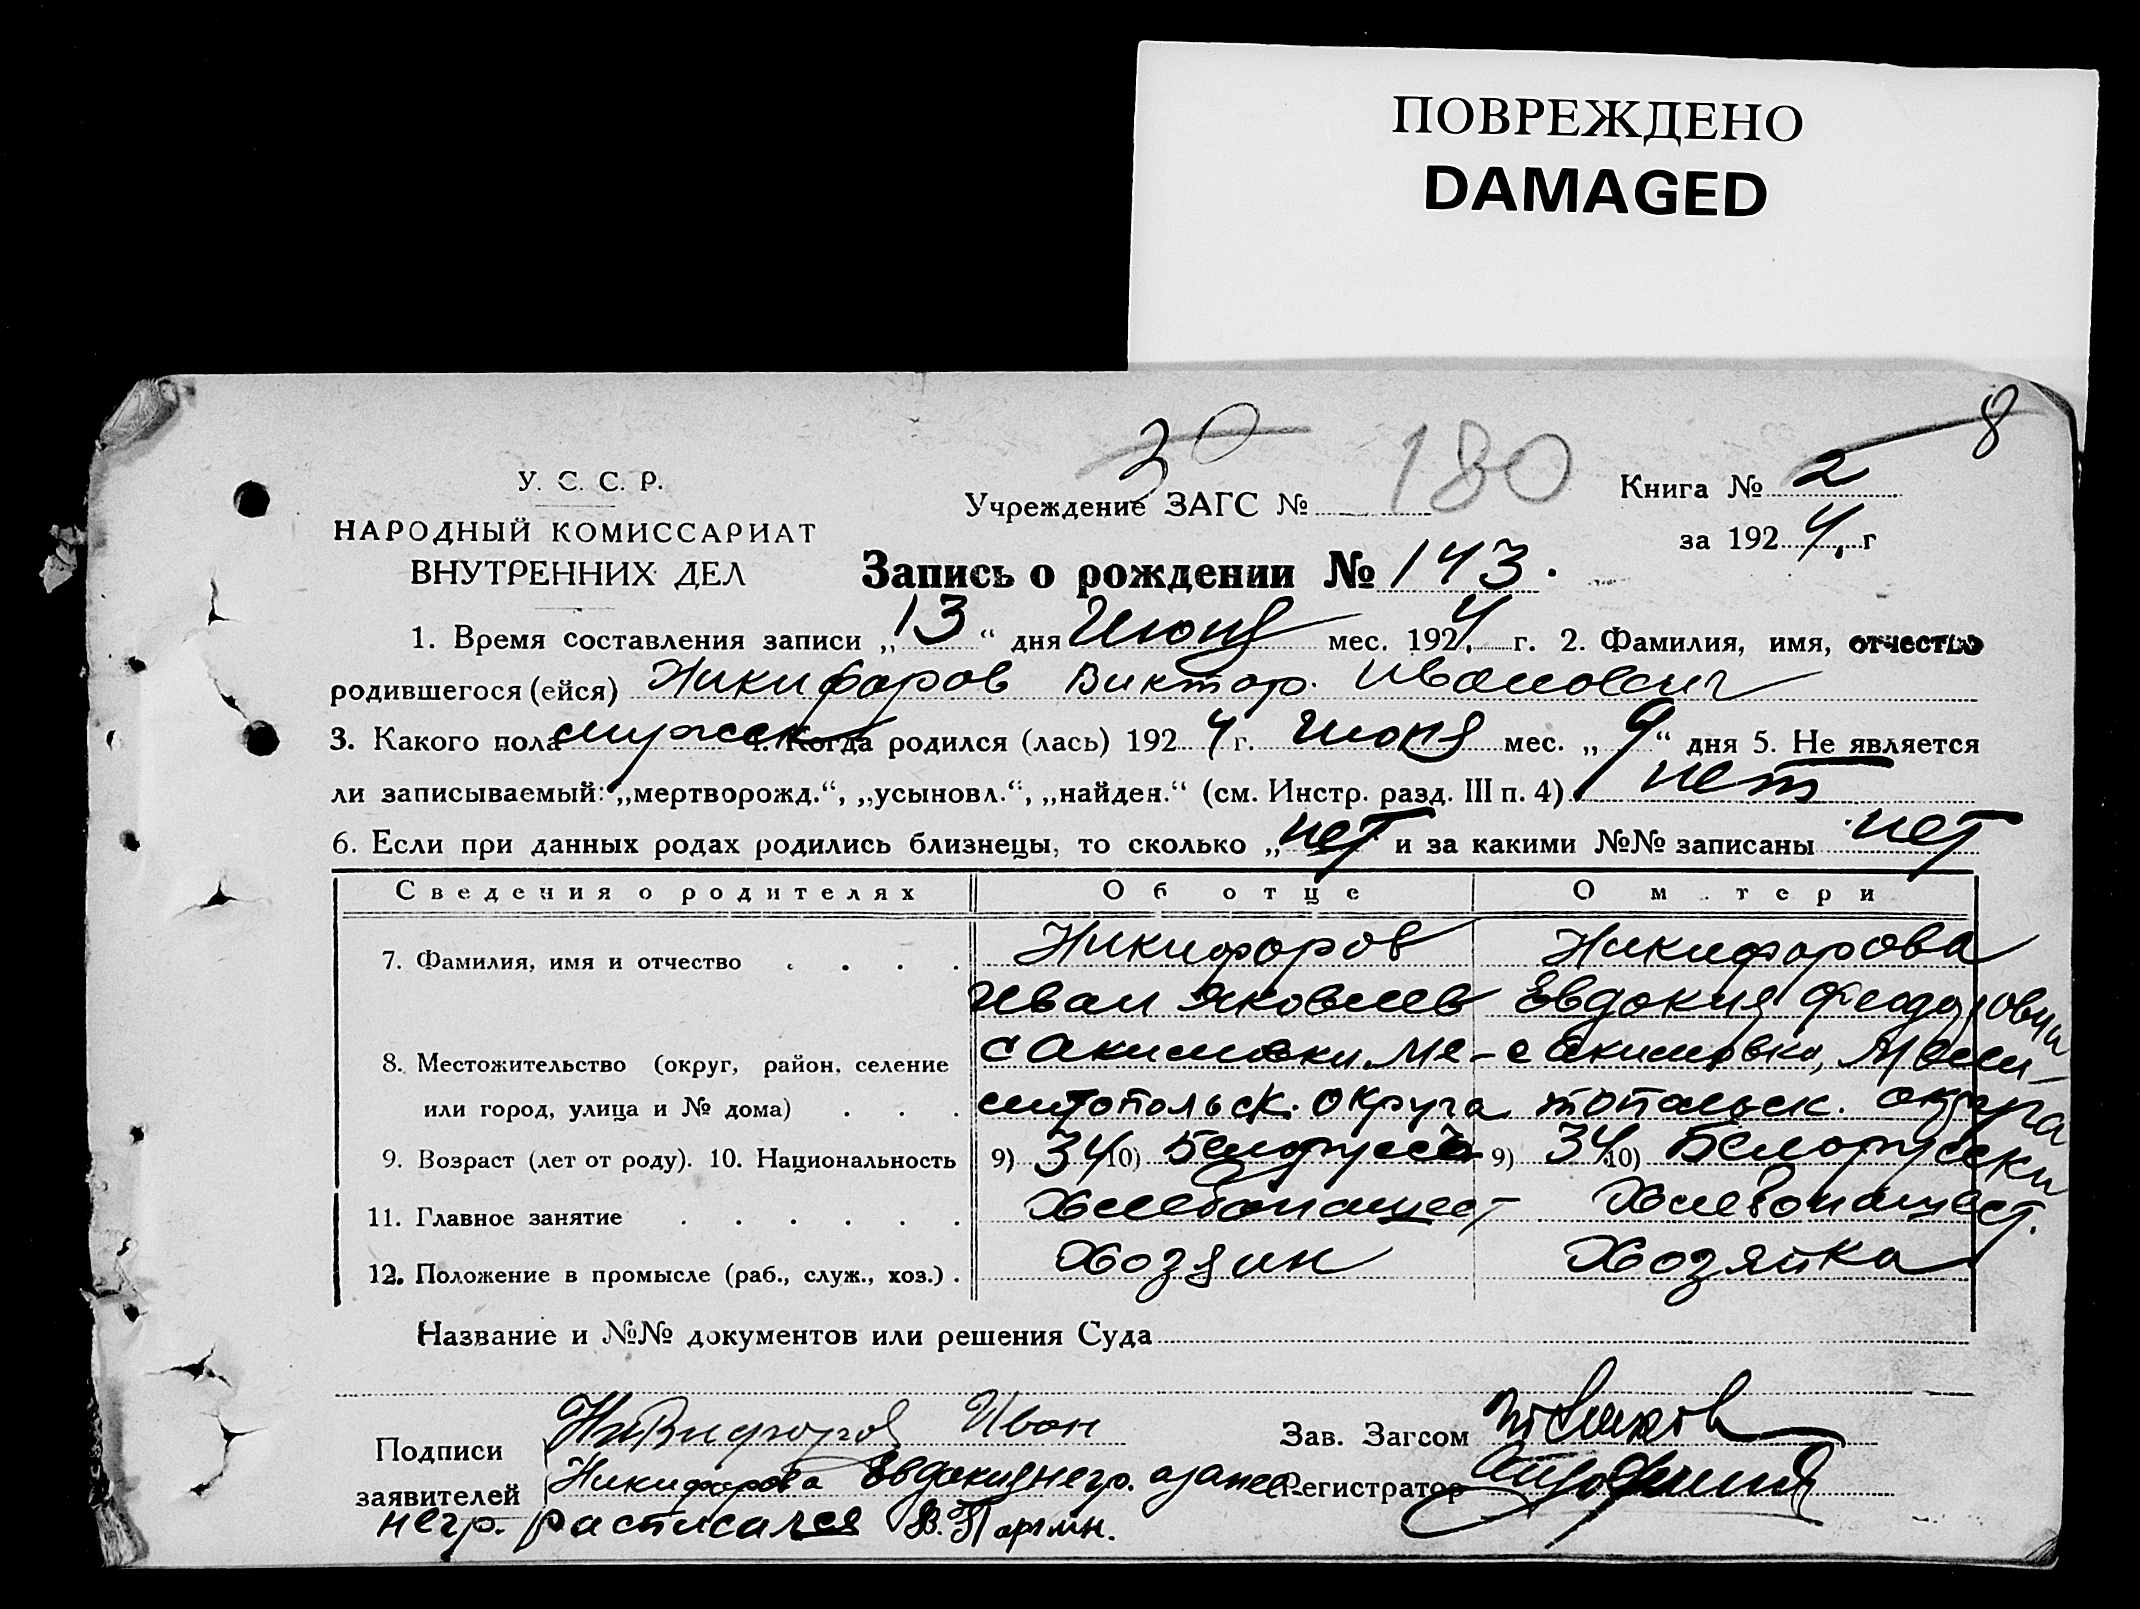 ПОВРЕЖДЕНО
DAMAGED
8
30 180
У. С. С. Р.
НАРОДНЫЙ КОМИССАРИАТ
ВНУТРЕННИХ ДЕЛ
Учреждение ЗАГС №
Книга № 2
за 1924 г
Запись о рождении № 143.
1. Время составления записи „13“ дня Июня мес. 1924 г. 2. Фамилия, имя, отчество
родившегося (ейся) Никифоров Виктор Иванович
3. Какого пола мужск 4. Когда родился (лась) 1924 г. Июня мес. „9“ дня 5. Не является
ли записываемый: „мертворожд.“, „усыновл.“, „найден.“ (см. Инстр. разд. III п. 4) нет
6. Если при данных родах родились близнецы, то сколько „нет“ и за какими №№ записаны нет
Сведения о родителях Об отце О м тери
7. Фамилия, имя и отчество Никифоров Никифорова
Иван Яковлев Евдокия Феодоровна
8. Местожительство (округ, район, селение с Акимовки, Ме- с Акимовка, Мели-
или город, улица и № дома) литопольск. округа топольск. округа
9. Возраст (лет от роду). 10. Национальность 9) 34 10) Белорусс 9) 34 10) Белорусски
11. Главное занятие Хлебопашест Хлебопашест.
12. Положение в промысле (раб., служ., хоз.) Хозяин Хозяйка
Название и №№ документов или решения Суда
Подписи Никифоров Иван Зав. Загсом
заявителей Никифорова Евдокия негр. Регистратор
негр. расписался В.